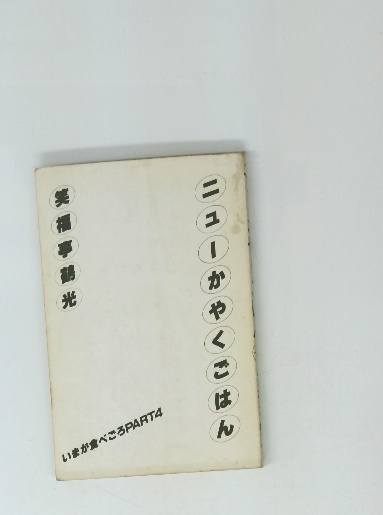 ニューかやくごはん
笑福亭鶴光
いまが食べごろPART4